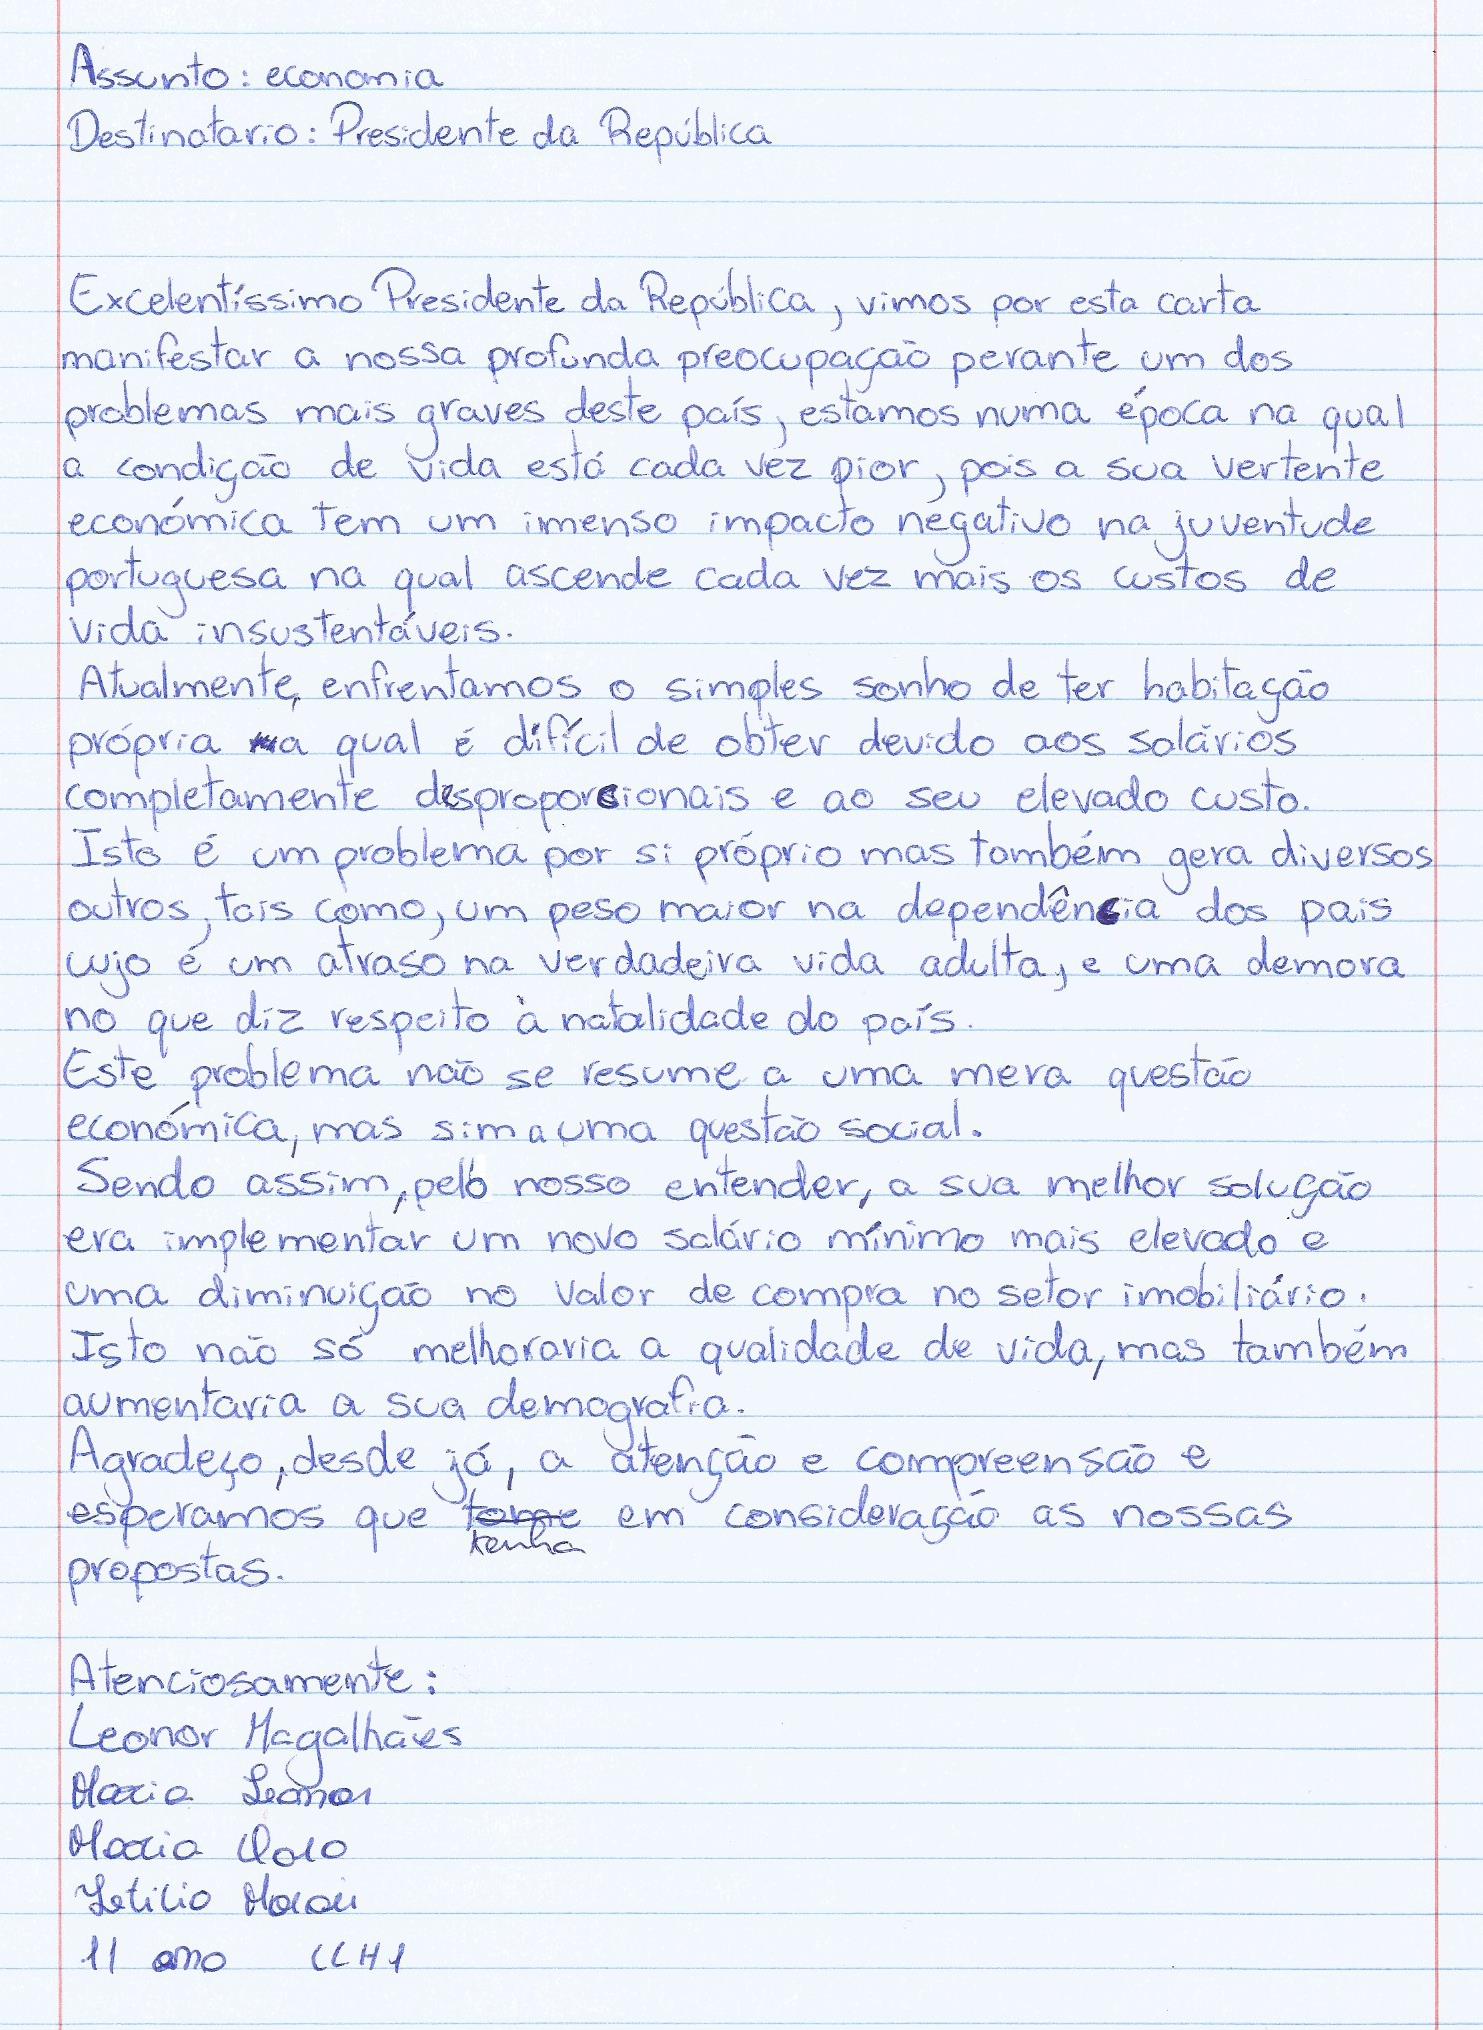 Assunto: economia
Destinatario: Presidente da República
Excelentíssimo Presidente da República, vimos por esta carta
manifestar a nossa profunda preocupação perante um dos
problemas mais graves deste país, estamos numa época na qual
a condição de vida está cada vez pior, pois a sua vertente
económica tem um imenso impacto negativo na juventude
portuguesa na qual ascende cada vez mais os custos de
vida insustentáveis.
Atualmente, enfrentamos o simples sonho de ter habitação
própria a qual é difícil de obter devido aos salários
completamente desproporcionais e ao seu elevado custo.
Isto é um problema por si próprio mas também gera diversos
outros, tais como, um peso maior na dependência dos pais
cujo é um atraso na verdadeira vida adulta, e uma demora
no que diz respeito à natalidade do país.
Este problema não se resume a uma mera questão
económica, mas sim a uma questão social.
Sendo assim, pelo nosso entender, a sua melhor solução
era implementar um novo salário mínimo mais elevado e
uma diminuição no valor de compra no setor imobiliário.
Isto não só melhoraria a qualidade de vida, mas também
aumentaria a sua demografia.
Agradeço, desde já, a atenção e compreensão e
esperamos que tome em consideração as nossas
tenha
propostas.
Atenciosamente:
Leonor Magalhães
Maria Leonor
Maria Clara
Letícia
11 ano CLH1